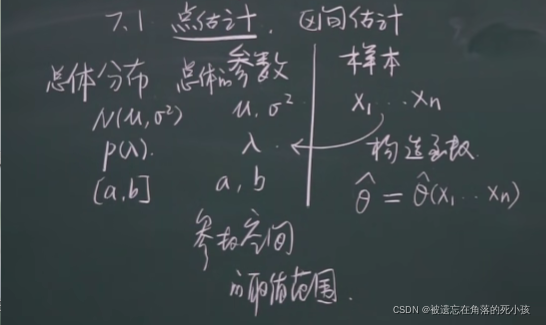 7.1 点估计. 区间估计
总体分布 总体的参数 样本
N(μ,σ²) μ,σ² x₁…xn
P(λ). λ. 构造函数
[a,b] a,b θ̂=θ̂(x₁…xn)
参数空间
的取值范围.
CSDN @被遗忘在角落的死小孩